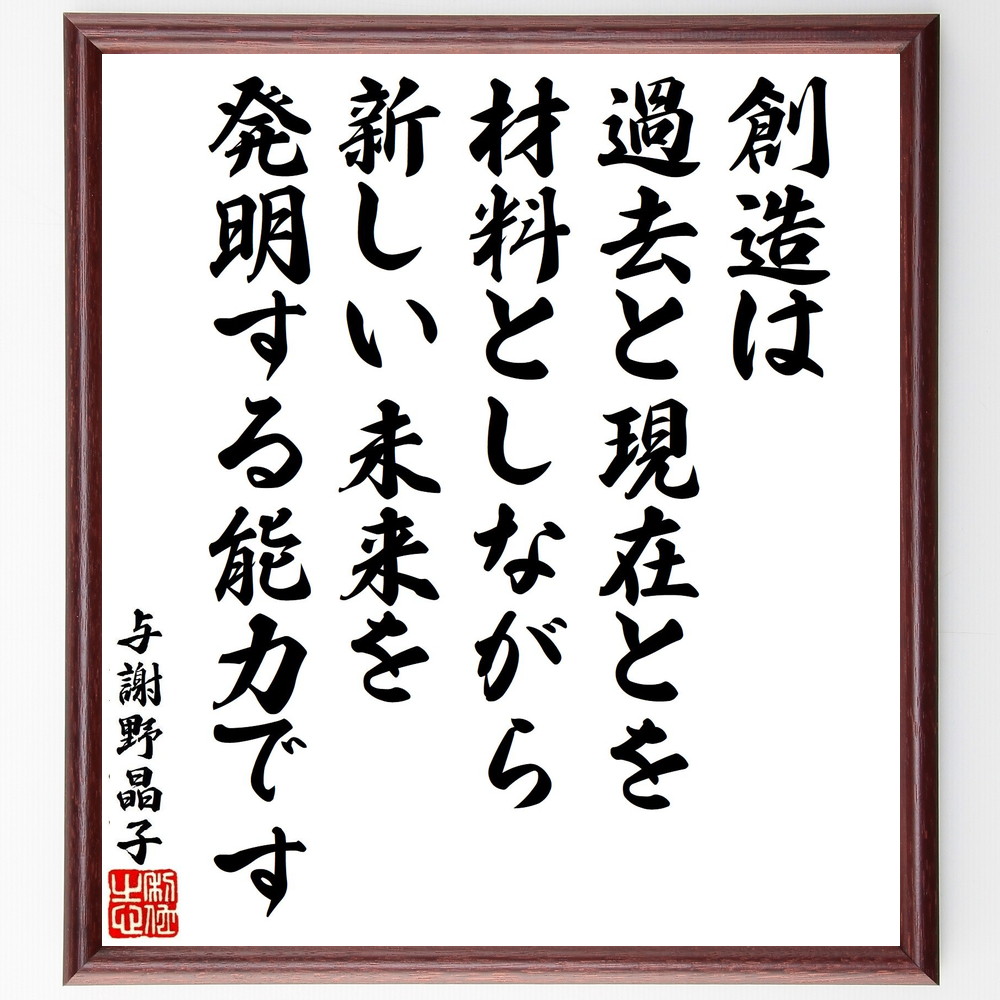 創造は
過去と現在とを
材料としながら
新しい未来を
発明する能力です
与謝野晶子